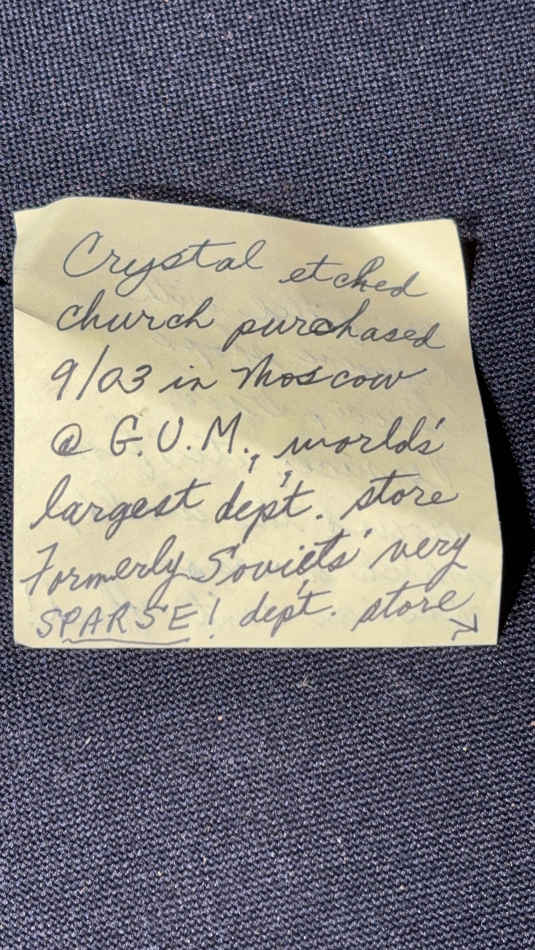 Crystal etched
church purchased
9/03 in Moscow
@ G.U.M., world's
largest dep't. store
Formerly Soviets' very
SPARSE! dep't. store
→